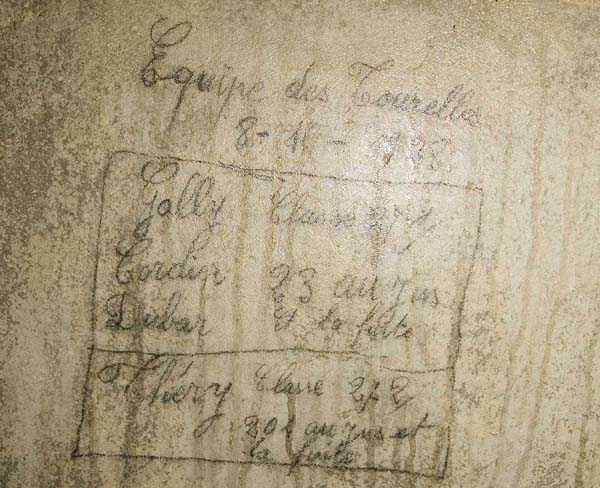 Equipe des Tourelles
8-11-1938
Golly Classe
Cordier 23 au jus
Dubar Et la fuite
Théry Classe 2/2
201 au jus et
la fuite